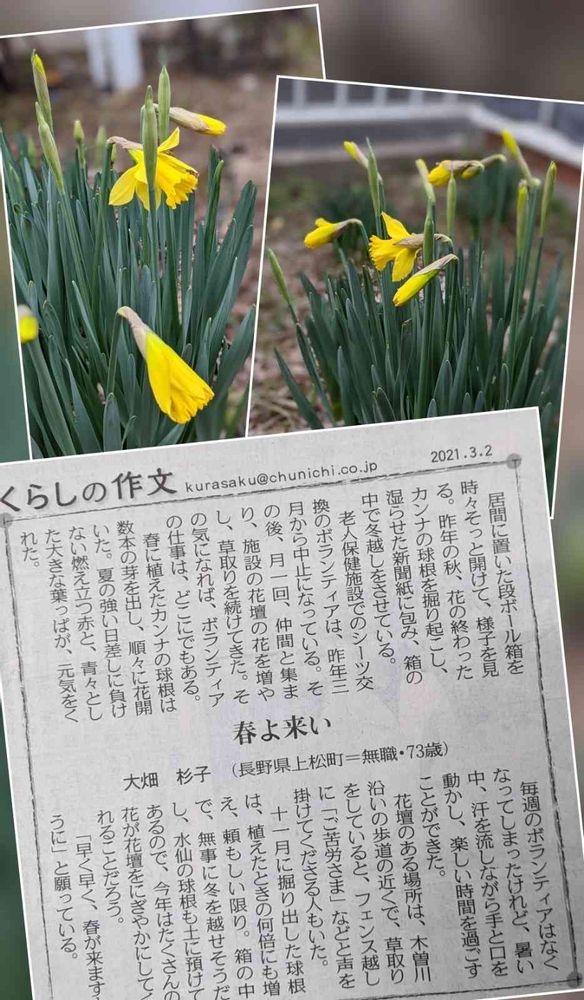 くらしの作文 kurasaku@chunichi.co.jp 2021.3.2
居間に置いた段ボール箱を
時々そっと開けて、様子を見
る。昨年の秋、花の終わった
カンナの球根を掘り起こし、
湿らせた新聞紙に包み、箱の
中で冬越しをさせている。
老人保健施設でのシーツ交
換のボランティアは、昨年三
月から中止になっている。そ
の後、月一回、仲間と集ま
り、施設の花壇の花を増や
し、草取りを続けてきた。そ
の気になれば、ボランティア
の仕事は、どこにでもある。
春に植えたカンナの球根は
数本の芽を出し、順々に花開
いた。夏の強い日差しに負け
ない燃え立つ赤と、青々とし
た大きな葉っぱが、元気をく
れた。
春よ来い
大畑 杉子 (長野県上松町=無職・73歳)
毎週のボランティアはなく
なってしまったけれど、暑い
中、汗を流しながら手と口を
動かし、楽しい時間を過ごす
ことができた。
花壇のある場所は、木曽川
沿いの歩道の近くで、草取り
をしていると、フェンス越し
に「ご苦労さま」などと声を
掛けてくださる人もいた。
十一月に掘り出した球根
は、植えたときの何倍にも増
え、頼もしい限り。箱の中
で、無事に冬を越せそうだ
し、水仙の球根も土に預けて
あるので、今年はたくさんの
花が花壇をにぎやかにしてく
れることだろう。
「早く早く、春が来ますよ
うに」と願っている。